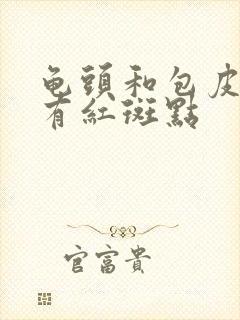 龟頭和包皮
有紅斑點
官富貴